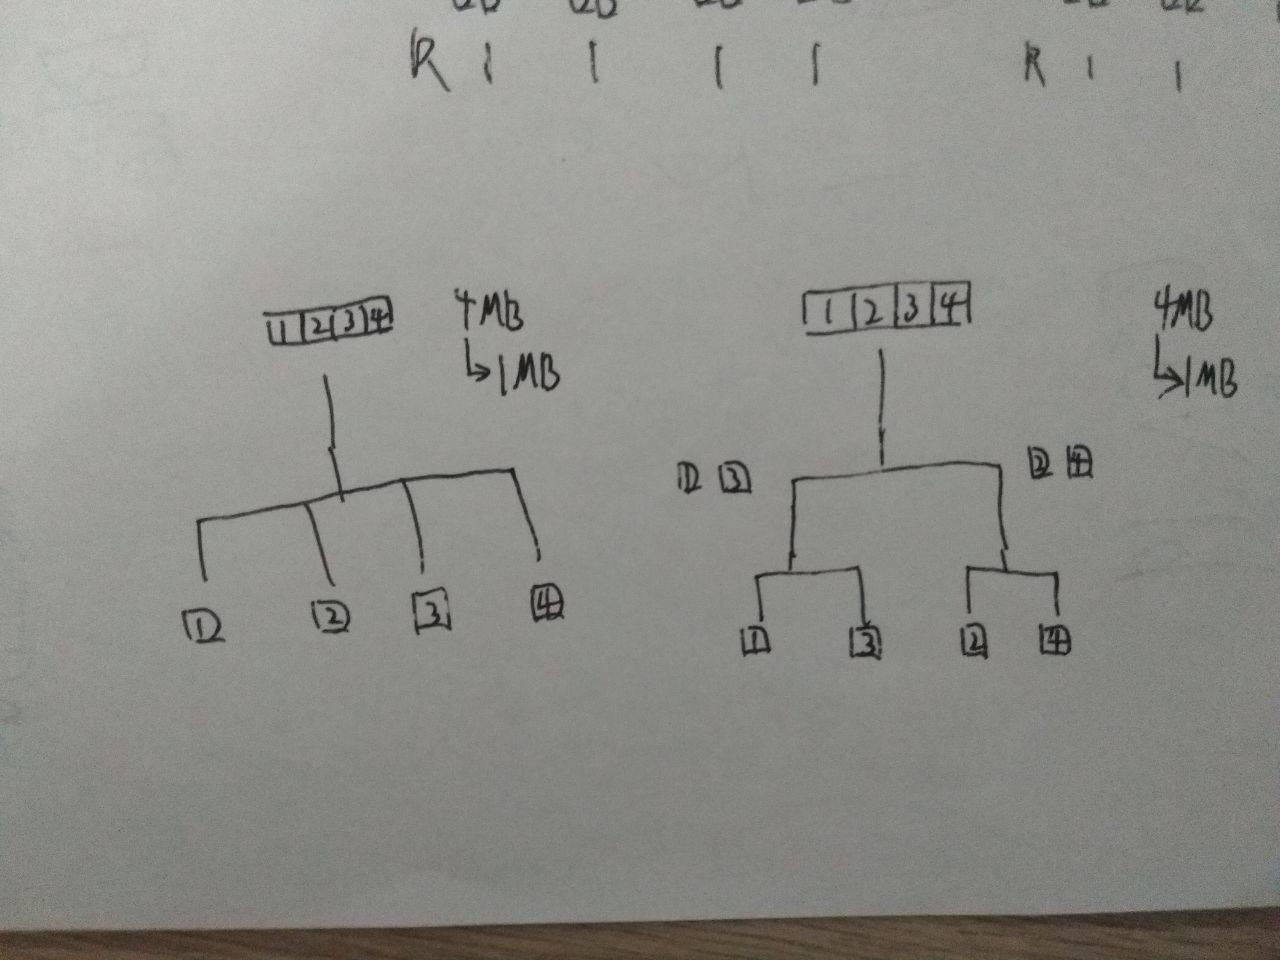 R 1 1 1 1 R 1 1
1 2 3 4 4MB
↳1MB
1 2 3 4
1 2 3 4 4MB
↳1MB
1 3 2 4
1 3 2 4